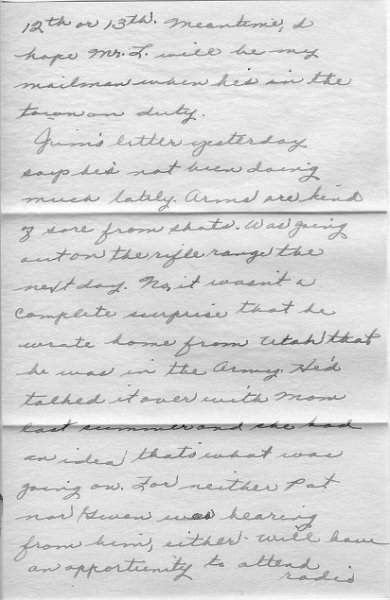 12th or 13th. Meantime, I
hope Mr. L. will be my
mailman when he's in the
town on duty.
Jim's letter yesterday
says he's not been doing
much lately. Arms are kind
of sore from shots. Was going
out on the rifle range the
next day. No, it wasn't a
complete surprise that he
wrote home from Utah that
he was in the Army. He'd
talked it over with Mom
last summer and she had
an idea that's what was
going on. For neither Pat
nor Gwen was hearing
from him, either. Will have
an opportunity to attend
radio